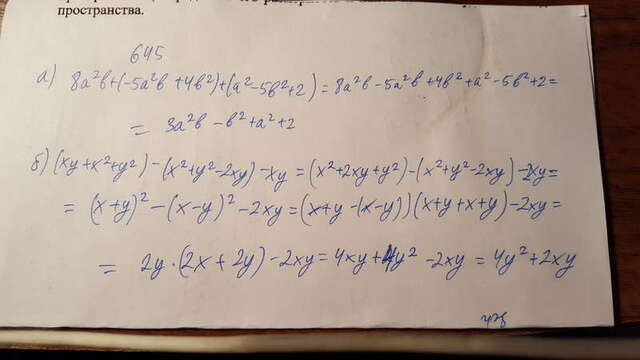 пространства.
645
а) 8a²b+(-5a²b+4b²)+(a²-5b²+2)=8a²b-5a²b+4b²+a²-5b²+2=
= 3a²b-b²+a²+2
б) (xy+x²+y²)-(x²+y²-2xy)-xy=(x²+2xy+y²)-(x²+y²-2xy)-2xy=
= (x+y)²-(x-y)²-2xy=(x+y-(x-y))(x+y+x+y)-2xy=
= 2y·(2x+2y)-2xy=4xy+4y²-2xy=4y²+2xy